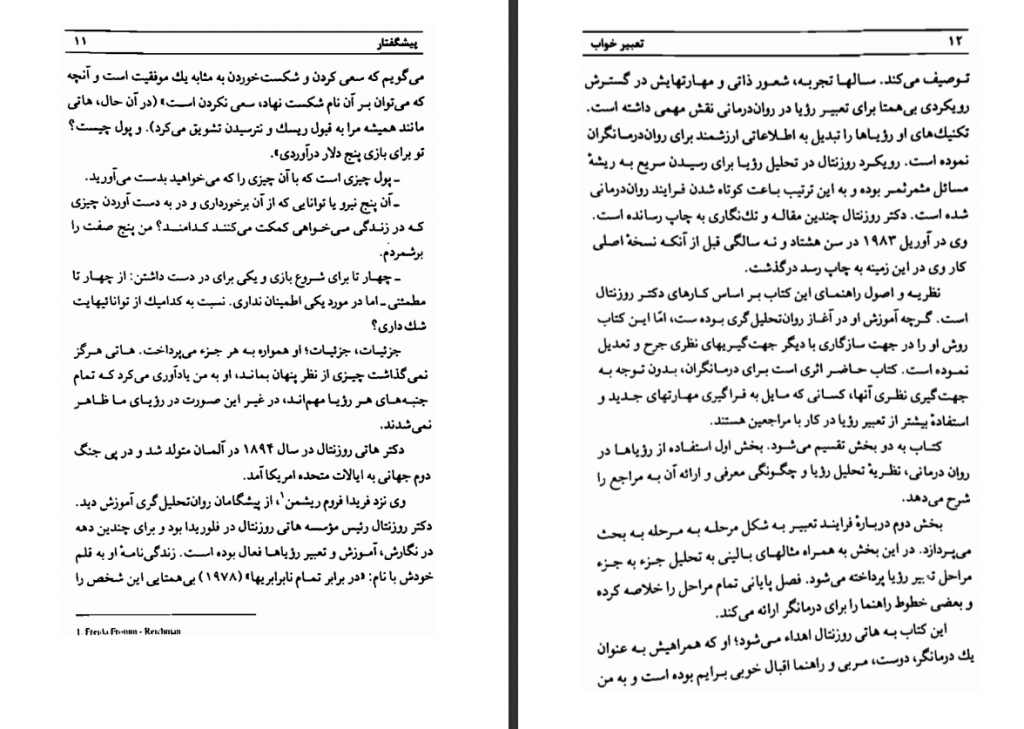 پیشگفتار ۱۱
می‌گویم که سعی کردن و شکست‌خوردن به مثابه یك موفقیت است و آنچه
که می‌توان بر آن نام شکست نهاد، سعی نکردن است» (در آن حال، هاتی
مانند همیشه مرا به قبول ریسك و نترسیدن تشویق می‌کرد). و پول چیست؟
تو برای بازی پنج دلار درآوردی».
ـ پول چیزی است که با آن چیزی را که می‌خواهید بدست می‌آورید.
ـ آن پنج نیرو یا توانایی که از آن برخورداری و در به دست آوردن چیزی
که در زندگی می‌خواهی کمکت می‌کنند کدامند؟ من پنج صفت را
برشمردم.
ـ چهار تا برای شروع بازی و یکی برای در دست داشتن: از چهار تا
مطمئنی ـ اما در مورد یکی اطمینان نداری. نسبت به کدامیك از توانائیهایت
شك داری؟
جزئیات، جزئیات؛ او همواره به هر جزء می‌پرداخت. هاتی هرگز
نمی‌گذاشت چیزی از نظر پنهان بماند، او به من یادآوری می‌کرد که تمام
جنبه‌های هر رؤیا مهم‌اند، در غیر این صورت در رؤیای ما ظاهر
نمی‌شدند.
دکتر هاتی روزنتال در سال ۱۸۹۴ در آلمان متولد شد و در پی جنگ
دوم جهانی به ایالات متحده امریکا آمد.
وی نزد فریدا فروم ریشمن۱، از پیشگامان روان‌تحلیل‌گری آموزش دید.
دکتر روزنتال رئیس مؤسسه هاتی روزنتال در فلوریدا بود و برای چندین دهه
در نگارش، آموزش و تعبیر رؤیاها فعال بوده است. زندگی‌نامهٔ او به قلم
خودش با نام: «در برابر تمام نابرابریها» (۱۹۷۸) بی‌همتایی این شخص را
1. Frieda Fromm - Reichman
۱۲ تعبیر خواب
توصیف می‌کند. سالها تجربه، شعور ذاتی و مهارتهایش در گسترش
رویکردی بی‌همتا برای تعبیر رؤیا در روان‌درمانی نقش مهمی داشته است.
تکنیك‌های او رؤیاها را تبدیل به اطلاعاتی ارزشمند برای روان‌درمانگران
نموده است. رویکرد روزنتال در تحلیل رؤیا برای رسیدن سریع به ریشهٔ
مسائل مثمرثمر بوده و به این ترتیب باعث کوتاه شدن فرایند روان‌درمانی
شده است. دکتر روزنتال چندین مقاله و تك‌نگاری به چاپ رسانده است.
وی در آوریل ۱۹۸۳ در سن هشتاد و نه سالگی قبل از آنکه نسخهٔ اصلی
کار وی در این زمینه به چاپ رسد درگذشت.
نظریه و اصول راهنمای این کتاب بر اساس کارهای دکتر روزنتال
است. گرچه آموزش او در آغاز روان‌تحلیل‌گری بوده ست، امّا این کتاب
روش او را در جهت سازگاری با دیگر جهت‌گیریهای نظری جرح و تعدیل
نموده است. کتاب حاضر اثری است برای درمانگران، بدون توجه به
جهت‌گیری نظری آنها، کسانی که مایل به فراگیری مهارتهای جدید و
استفادهٔ بیشتر از تعبیر رؤیا در کار با مراجعین هستند.
کتاب به دو بخش تقسیم می‌شود. بخش اول استفاده از رؤیاها در
روان درمانی، نظریهٔ تحلیل رؤیا و چگونگی معرفی و ارائه آن به مراجع را
شرح می‌دهد.
بخش دوم دربارهٔ فرایند تعبیر به شکل مرحله به مرحله به بحث
می‌پردازد. در این بخش به همراه مثالهای بالینی به تحلیل جزء به جزء
مراحل تعبیر رؤیا پرداخته می‌شود. فصل پایانی تمام مراحل را خلاصه کرده
و بعضی خطوط راهنما را برای درمانگر ارائه می‌کند.
این کتاب به هاتی روزنتال اهداء می‌شود؛ او که همراهیش به عنوان
یك درمانگر، دوست، مربی و راهنما اقبال خوبی برایم بوده است و به من